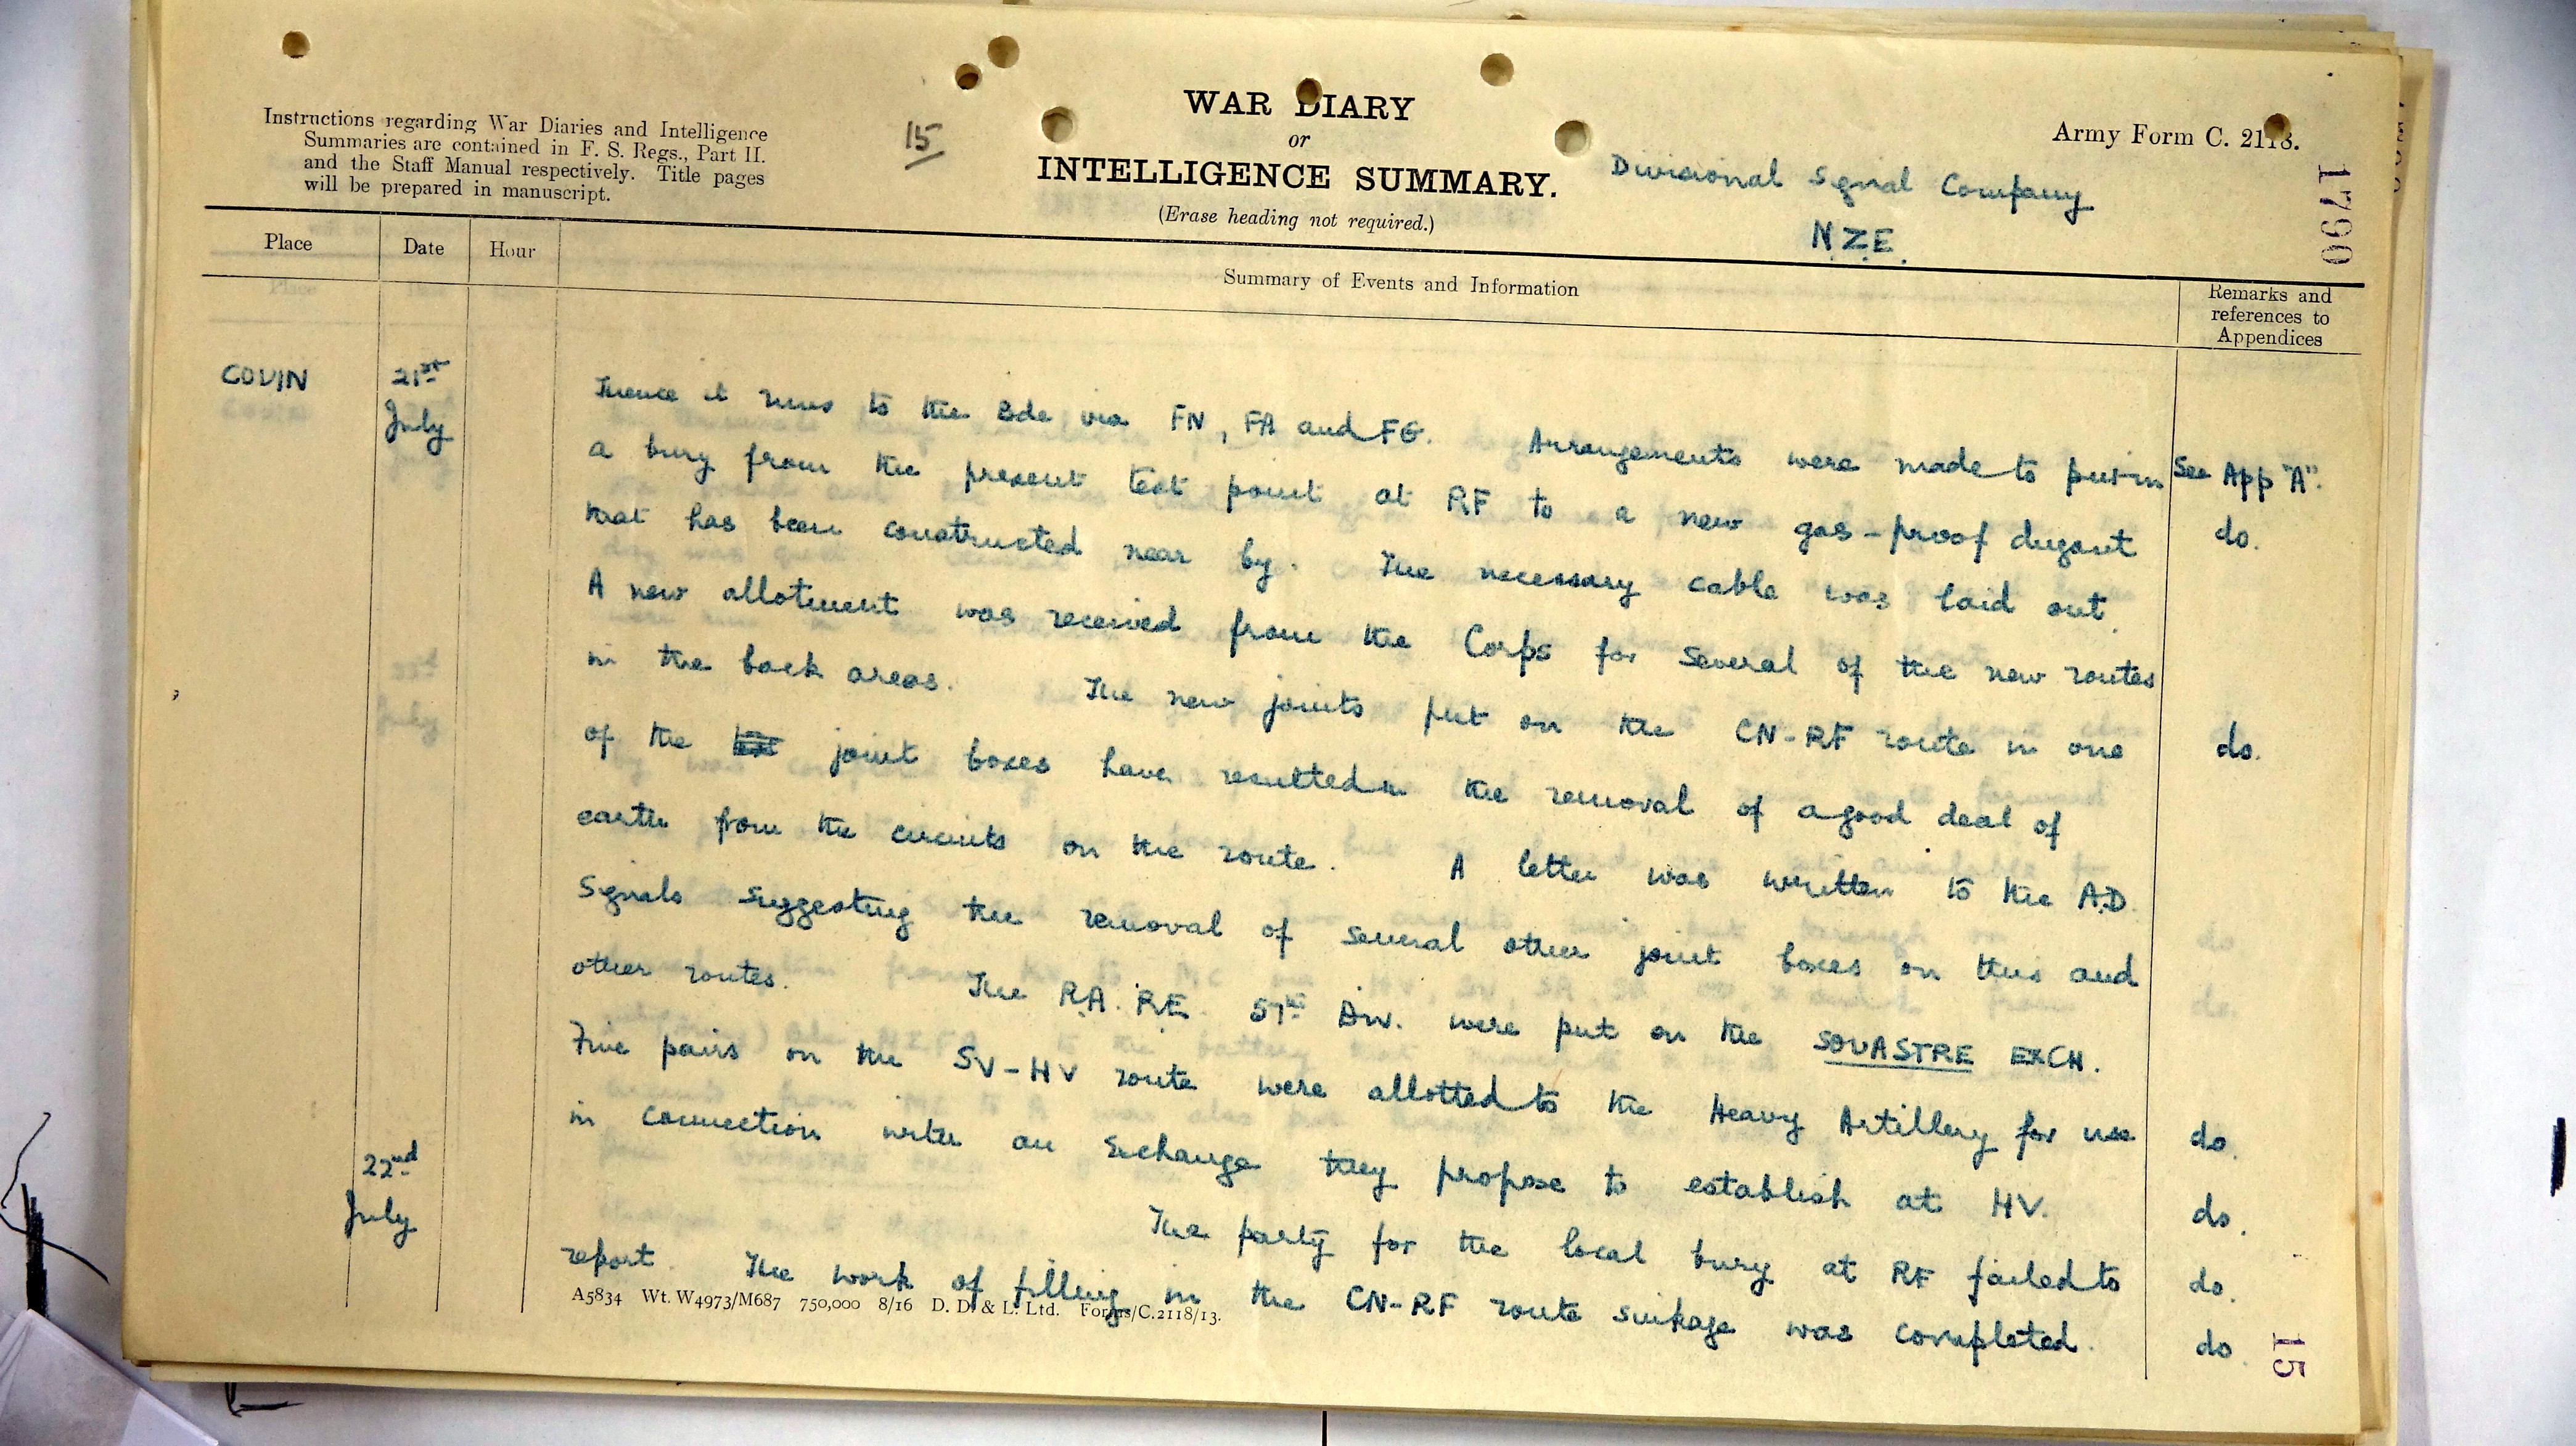 Instructions regarding War Diaries and Intelligence
Summaries are contained in F. S. Regs., Part II.
and the Staff Manual respectively. Title pages
will be prepared in manuscript.
15
WAR DIARY
or
INTELLIGENCE SUMMARY.
(Erase heading not required.)
Army Form C. 2118.
Divisional Signal Company
N.Z.E.
1790
Place Date Hour Summary of Events and Information Remarks and references to Appendices
COUIN 21st July
Thence it runs to the Bde via FN, FA and FG. Arrangements were made to put in See App "A".
a bury from the present test point at RF to a new gas-proof dugout do.
that has been constructed near by. The necessary cable was laid out.
A new allotment was received from the Corps for several of the new routes
in the back areas. The new joints put on the CN-RF route in one do.
of the joint boxes have resulted in the removal of a good deal of
earth from the circuits on the route. A letter was written to the A.D.
Signals suggesting the removal of several other joint boxes on this and
other routes. The R.A. R.E. 57th Div. were put on the SOUASTRE EXCH.
Five pairs on the SV-HV route were allotted to the Heavy Artillery for use do.
in connection with an Exchange they propose to establish at HV. do.
22nd July
The party for the local bury at RF failed to do.
report. The work of filling in the CN-RF route sinkage was completed. do.
A5834 Wt. W4973/M687 750,000 8/16 D. D. & L. Ltd. Forms/C.2118/13.
15